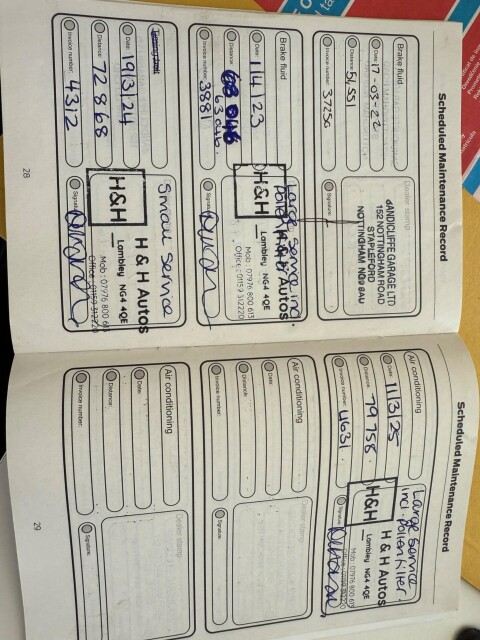 Scheduled Maintenance Record
Brake fluid
Date: 17-03-22
Distance: 51,551
Invoice number: 37250
Dealer stamp
SANDICLIFFE GARAGE LTD
152 NOTTINGHAM ROAD
STAPLEFORD
NOTTINGHAM NG9 8AU
Signature:
Brake fluid
Date: 1/4/23
Distance:
63046.
Invoice number: 3881
Large Service inc.
Pollen
H&H
H & H Autos
Lambley NG4 4QE
Mob: 07976 800 613
Office: 01159 312220
Signature:
Date: 19/3/24
Distance: 72868
Invoice number: 4312
Small Service
H&H
H & H Autos
Lambley NG4 4QE
Mob: 07976 800 613
Office: 01159 312220
Signature:
28
Scheduled Maintenance Record
Air conditioning
Date: 11/3/25
Distance: 79758
Invoice number: 4631.
Large Service
incl. pollen filter.
H&H
H & H Autos
Lambley NG4 4QE
Mob: 07976 800 613
Office: 01159 312220
Signature:
Air conditioning
Date:
Distance:
Invoice number:
Dealer stamp
Signature:
Air conditioning
Date:
Distance:
Invoice number:
Dealer stamp
Signature:
29